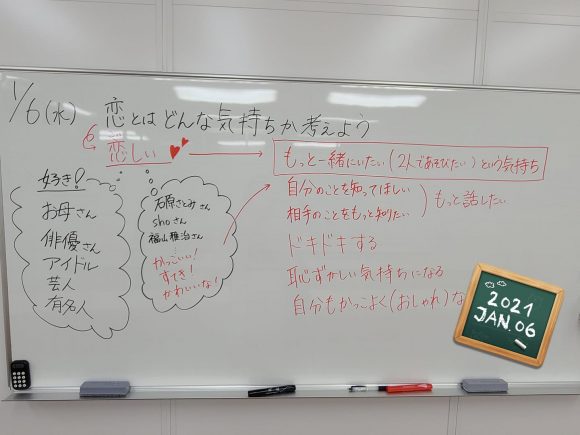 1/6(水) 恋とはどんな気持ちか考えよう
恋しい
好き!
お母さん
俳優さん
アイドル
芸人
有名人
石原さとみさん
shoさん
福山雅治さん
かっこいい!
すてき!
かわいいな!
もっと一緒にいたい(2人であそびたい)という気持ち
自分のことを知ってほしい
相手のことをもっと知りたい
もっと話したい
ドキドキする
恥ずかしい気持ちになる
自分もかっこよく(おしゃれ)な
2021
JAN.06